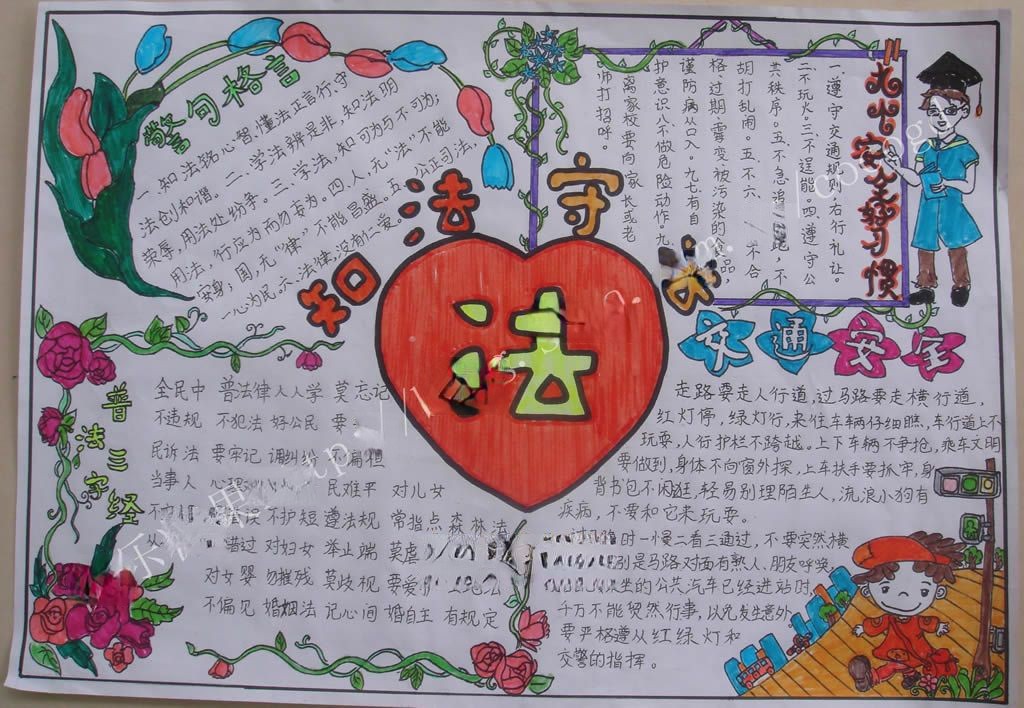 警句格言
一、知法强心智,懂法正言行,守
法创和谐。二、学法辨是非,知法明
荣辱,用法处纷争。三、学法,知可为与不可为;
用法,行应为而勿妄为。四、人,无“法”不能
安身;国,无“律”不能昌盛。五、公正司法,
一心为民。六、法律,没有仁爱。
知法守法
法
九个安全好习惯
一、遵守交通规则,右行礼让。
二、不玩火。三、不逞能。四、遵守公
共秩序。五、不急追
胡打乱闹。五、不六
不合
格、过期、霉变、被污染的食品,
谨防病从口入。九、七、有自
护意识八不做危险动作。九、
离家离校要向家长或老
师打招呼。
交通安全
走路要走人行道,过马路要走横行道,
红灯停,绿灯行,来往车辆仔细瞧,车行道上不
玩耍,人行护栏不跨越。上下车辆不争抢,乘车文明
要做到,身体不向窗外探,上车扶手要抓牢,身
背书包不闲逛,轻易别理陌生人,流浪小狗有
疾病,不要和它来玩耍。
过
时一慢二看三通过,不要突然横
别是马路对面有熟人、朋友呼唤,
坐的公共汽车已经进站时,
千万不能贸然行事,以免发生意外
要严格遵从红绿灯和
交警的指挥。
普法三字经
全民中 普法律 人人学 莫忘记
不违规 不犯法 好公民 要
民诉法 要牢记 调纠纷 不偏袒
当事人 民难平 对儿女
不护短 遵法规 常指点 森林法
错过 对妇女 举止端 莫虐
对女婴 勿摧残 莫歧视 要爱
不偏见 婚姻法 记心间 婚自主 有规定